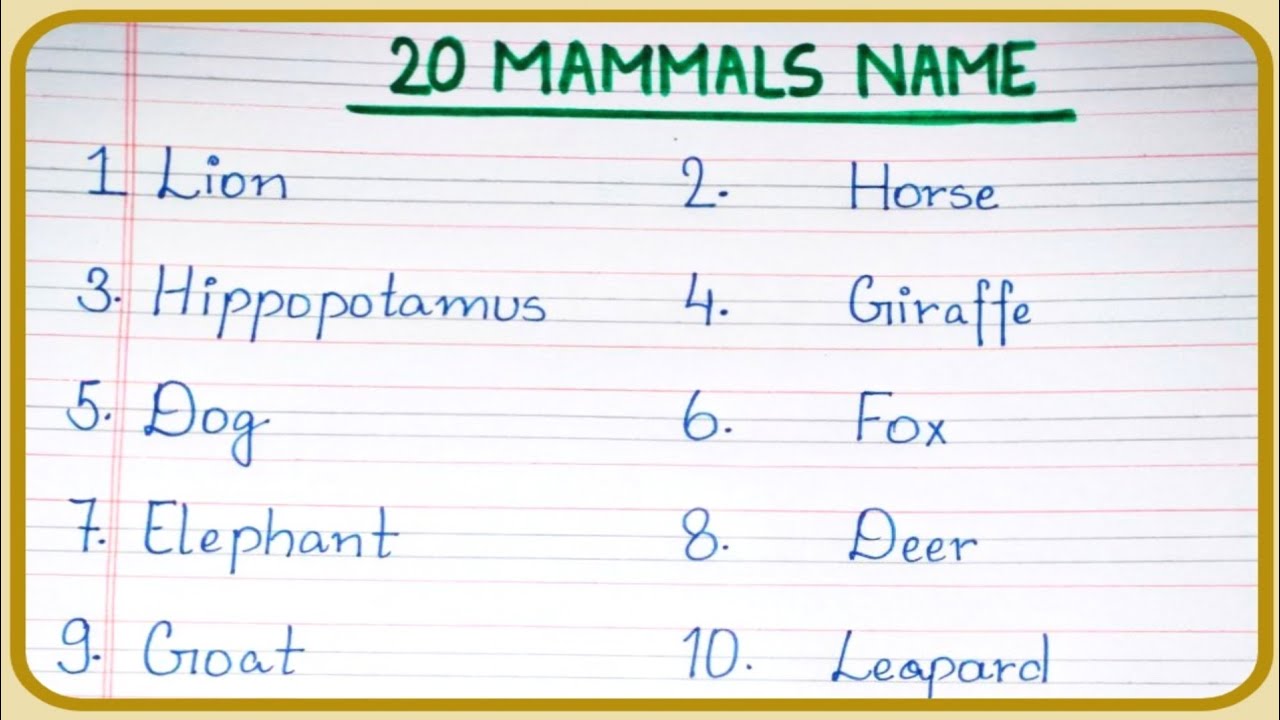 20 MAMMALS NAME
1 Lion 2. Horse
3. Hippopotamus 4. Giraffe
5. Dog 6. Fox
7. Elephant 8. Deer
9. Goat 10. Leapard